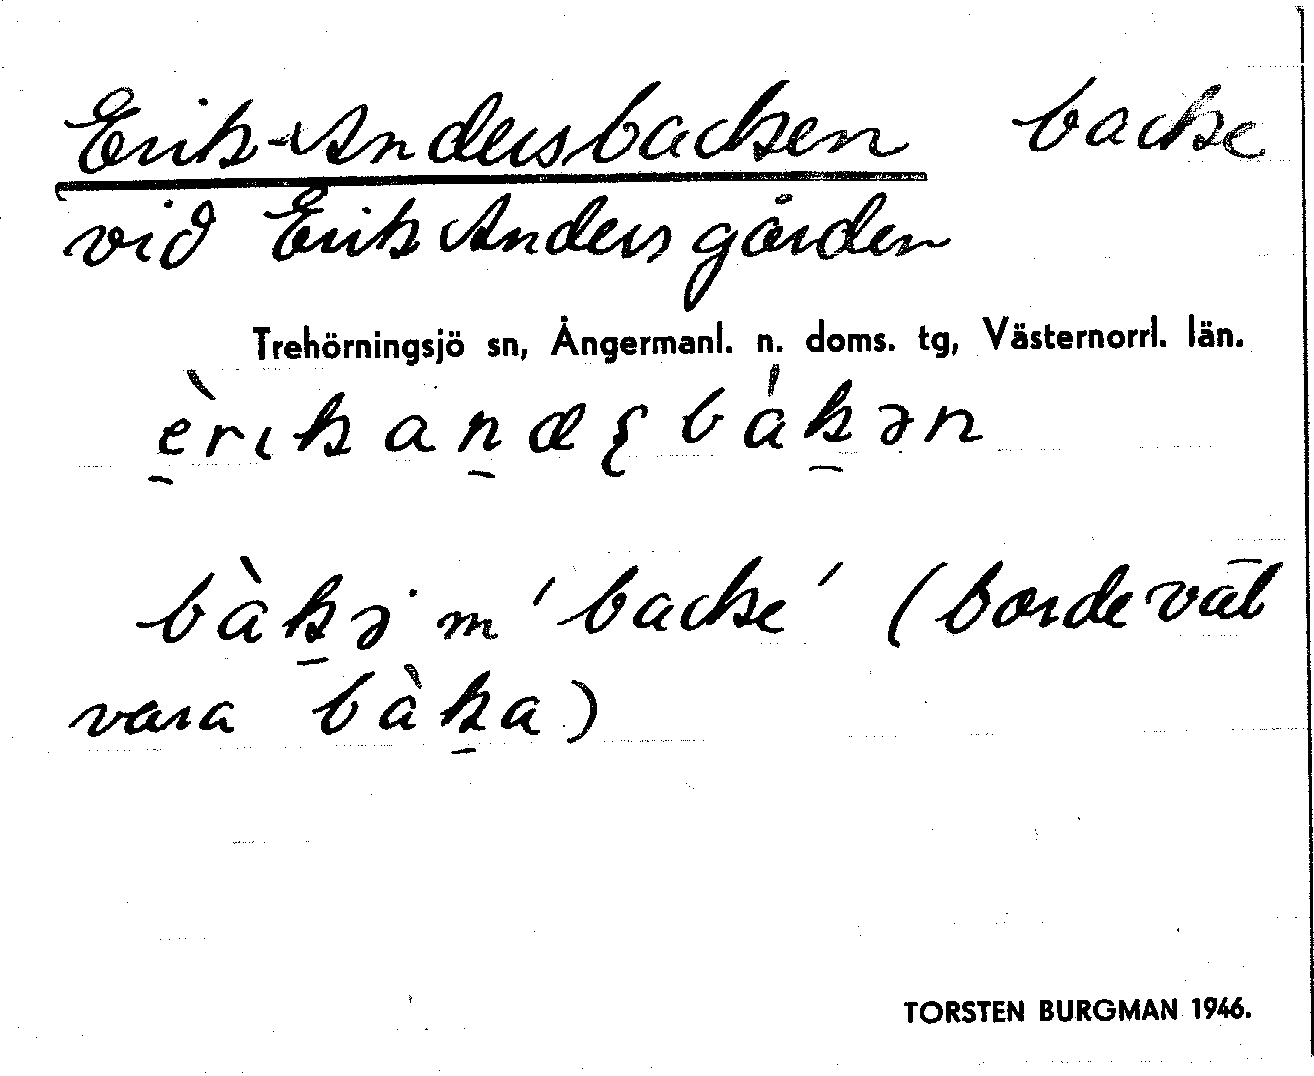 Erik-Andersbacken backe
vid Erik Andersgården
Trehörningsjö sn, Ångermanl. n. doms. tg, Västernorrl. län.
è̱rιkaṉæʂbá́ḵən
bàḵə m 'backe' (borde väl
vara bàḵa)
TORSTEN BURGMAN 1946.